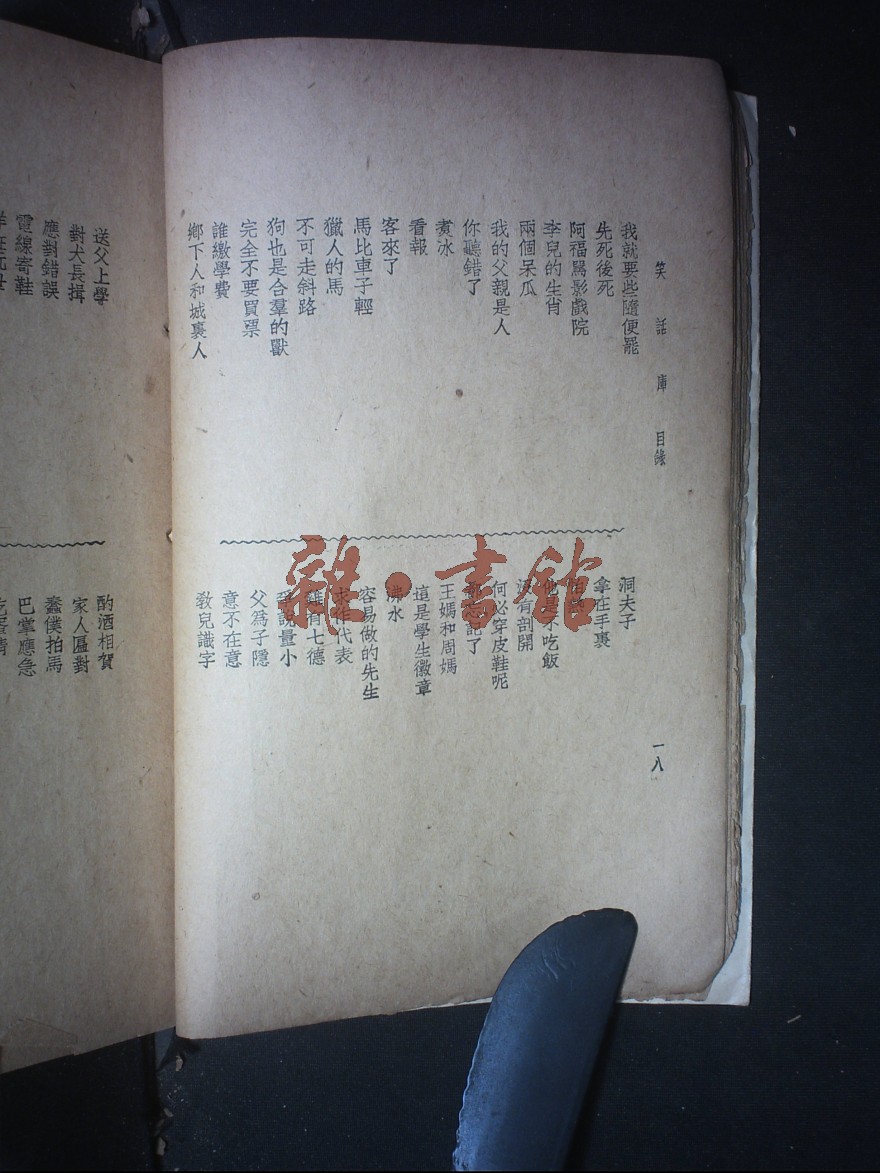 笑話庫目錄
一八
我就要些隨便罷
先死後死
阿福罵影戲院
李兒的生肖
兩個呆瓜
我的父親是人
你聽錯了
煑冰
看報
客來了
馬比車子輕
獵人的馬
不可走斜路
狗也是合羣的獸
完全不要買票
誰繳學費
鄉下人和城裏人
洞夫子
拿在手裏
他是不吃飯
沒有剖開
何必穿皮鞋呢
忘記了
王媽和周媽
這是學生徽章
沸水
容易做的先生
求作代表
雞有七德
爭說量小
父爲子隱
意不在意
敎兒識字
送父上學
對犬長揖
應對錯誤
電線寄鞋
酌酒相賀
家人匾對
蠢僕拍馬
巴掌應急
雜·書館